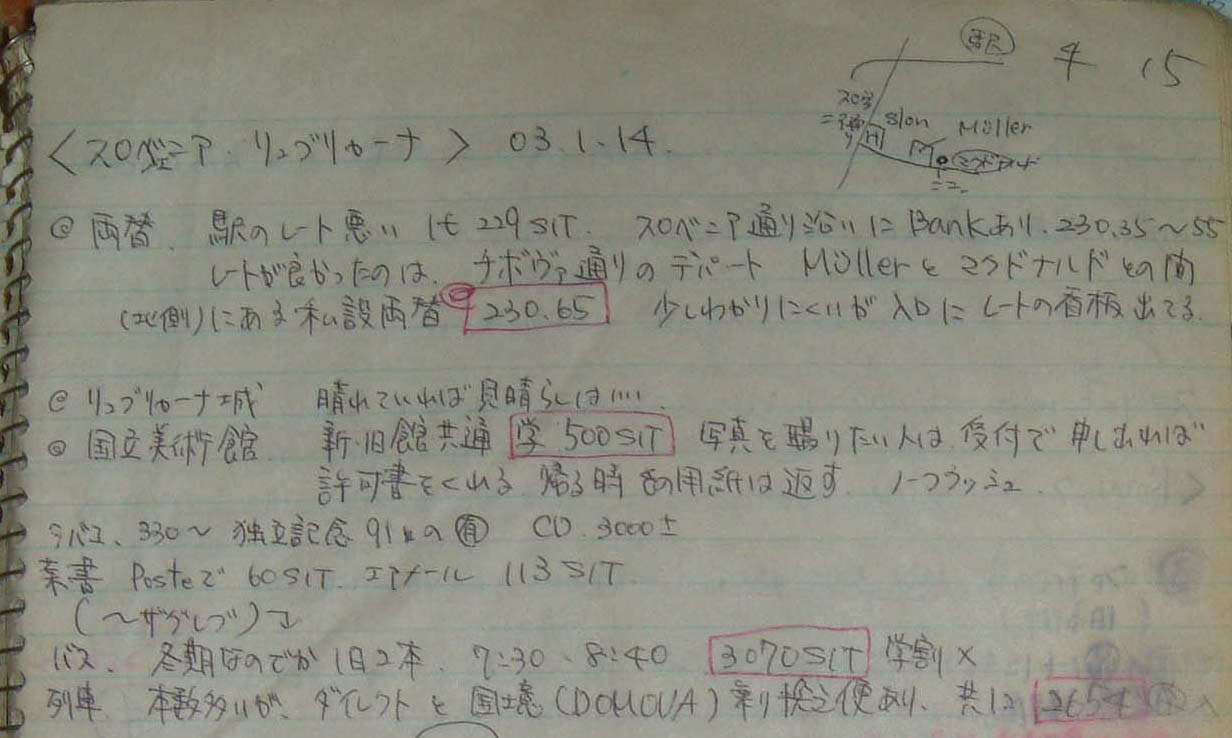 駅
4 15
スロヴェニア通り
H Slon Müller
マクドナルド
ココ
<スロベニア・リュブリャーナ> 03.1.14.
@両替. 駅のレート悪い 1€ 229SIT. スロベニア通り沿いにBankあり. 230.35〜55
レートが良かったのは、チボヴァ通りのデパート Müllerとマクドナルドとの間
(北側)にある私設両替 230.65 少しわかりにくいが入口にレートの看板出てる.
@リュブリャーナ城 晴れていれば見晴らしはいい.
@国立美術館. 新・旧館共通 学500SIT 写真を撮りたい人は、受付で申し出れば
許可書をくれる. 帰る時その用紙は返す. ノーフラッシュ.
タバコ、330〜 独立記念91もの有 CD. 3000±
葉書 Posteで 60SIT. エアメール 113SIT.
(〜ザグレブ)
バス、冬期なのでか1日2本. 7:30 . 8:40 3070SIT 学割×
列車 本数多いが、ダイレクトと国境(DOMOVA)乗り換え便あり、共に 2654